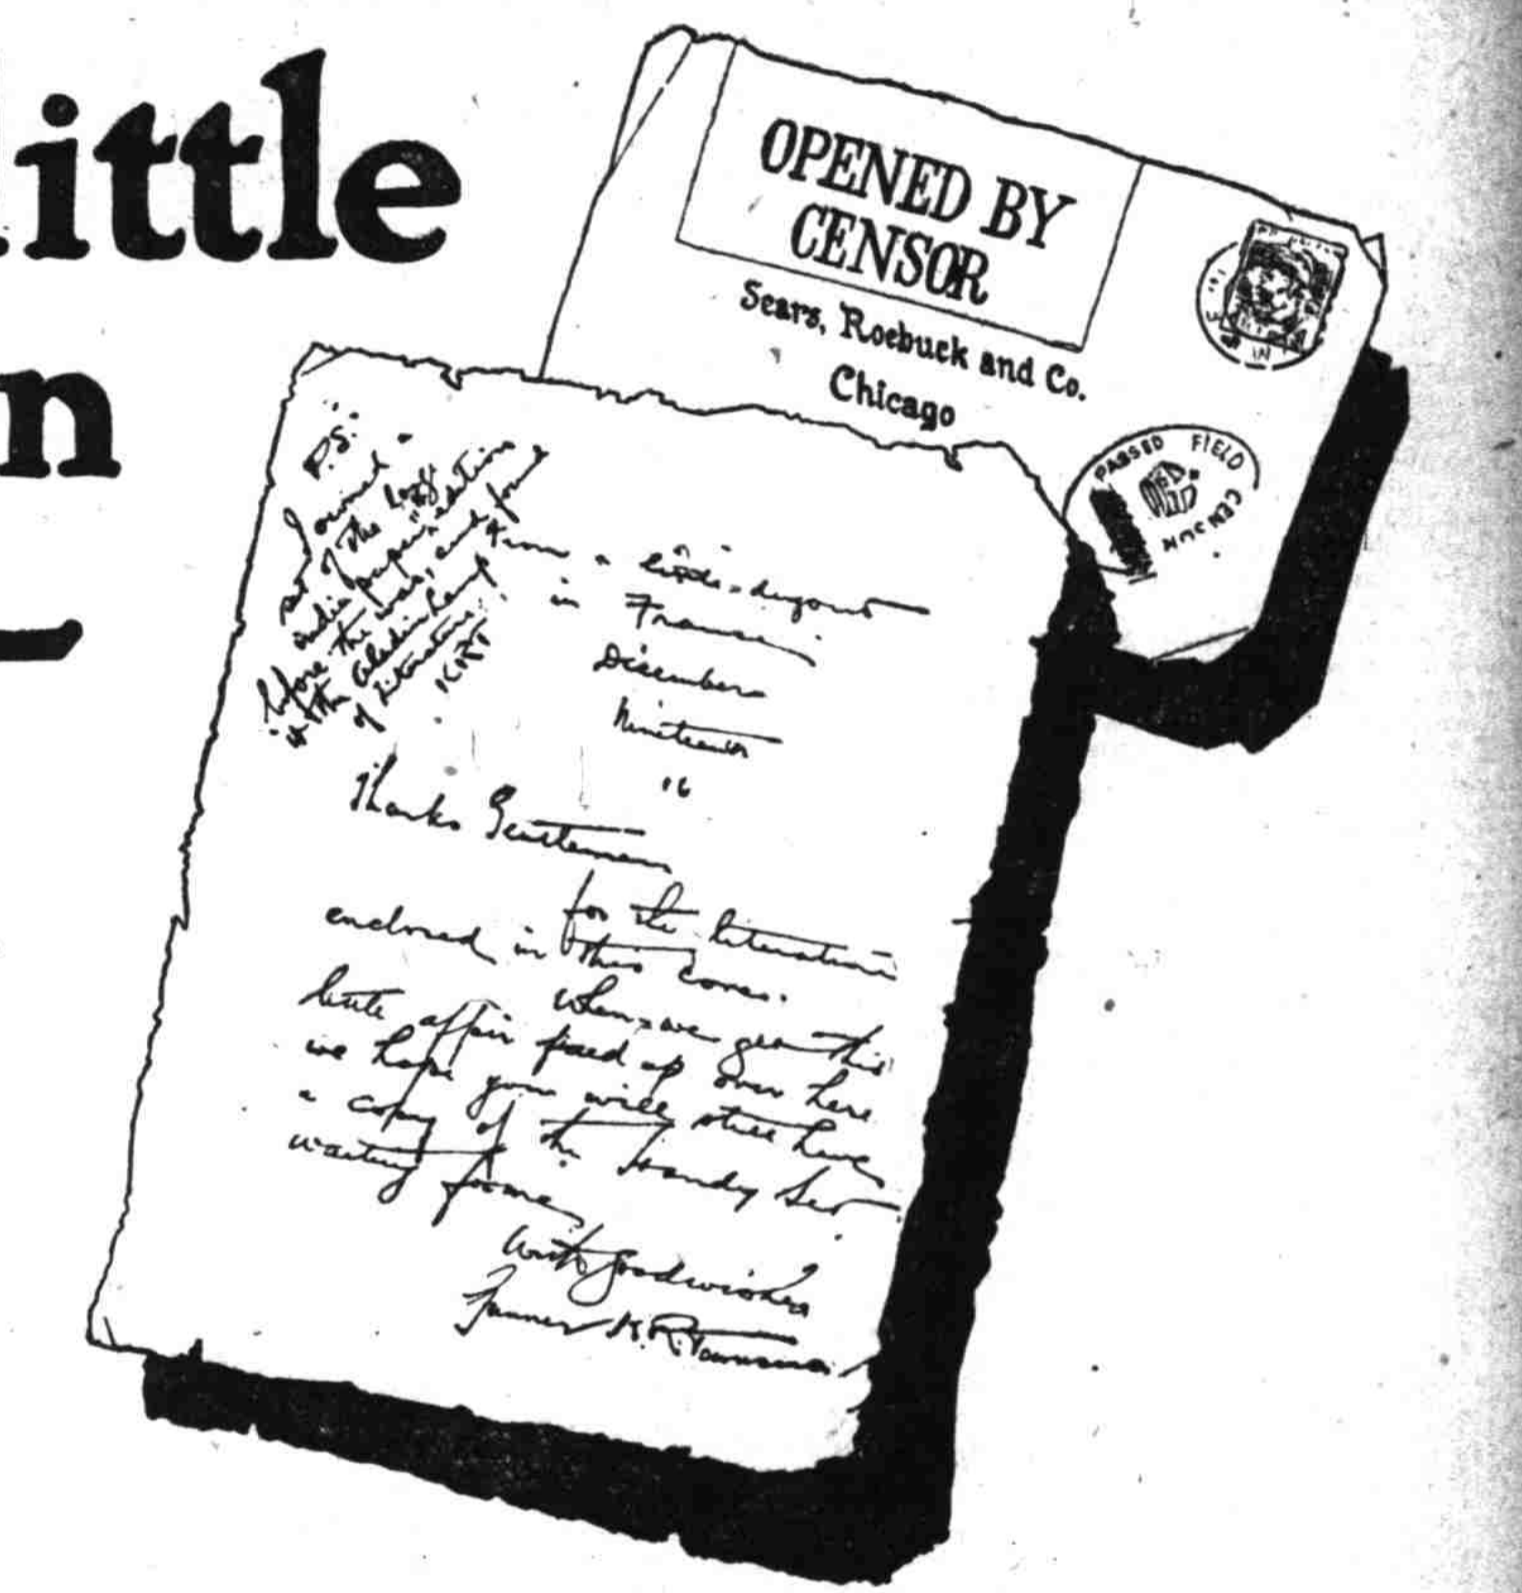 little
n
OPENED BY
CENSOR
Sears, Roebuck and Co.
Chicago
PASSED FIELD CENSOR
P.S.
I owned a
set of the large
india paper edition
before the war, and found
it the Aladdin Lamp
of Literature.
K.R.T.
From a little dugout
in France
December
Nineteen
16
Thanks Gentlemen
for the literature
enclosed in this cover.
When we get this
little affair fixed up over here
we hope you will still have
a copy of the Handy Set
waiting for me
With good wishes
K.R. Townsend